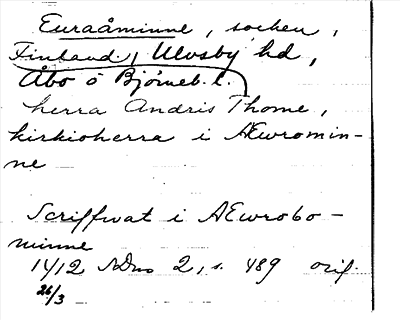 Euraåminne, socken,
Finland, Ulvsby hd,
Åbo o Björneb. l.
herra Andris Thome,
kirkioherra i Æwromin-
ne
Scriffwat i ÆEwrobo-
minne
1412 2, s. 489 orig.
26/3